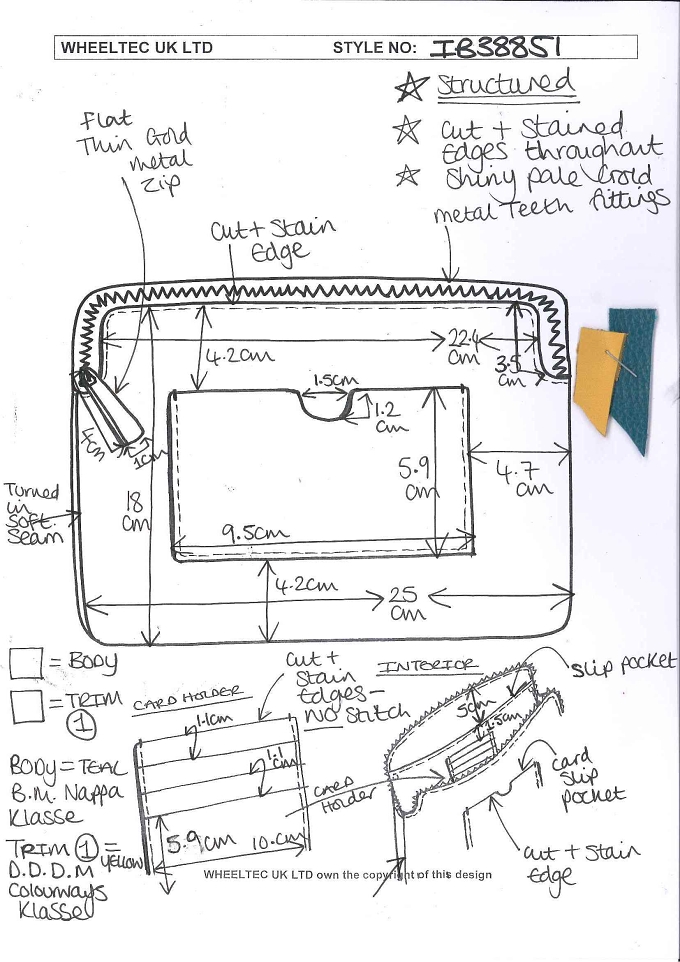 WHEELTEC UK LTD STYLE NO: IB38851
Structured
Cut + Stained
Edges throughout
Shiny pale Gold
metal Teeth fittings
Flat
Thin Gold
metal
Zip
Cut + Stain
Edge
4.2cm
22.4
cm
3.5
cm
1.5cm
1.2
cm
4cm
1cm
5.9
cm
4.7
cm
Turned
in
Soft
Seam
18
cm
9.5cm
4.2cm
25
cm
= BODY
= TRIM
1
CARD HOLDER
Cut +
Stain
Edges -
NO Stitch
INTERIOR
Slip pocket
1.1cm
1.1
cm
5cm
1.5cm
card
Holder
card
Slip
pocket
BODY = TEAL
B.M. Nappa
Klasse
TRIM 1 = YELLOW
D.D.D.M
Colourways
Klasse
5.9cm
10.cm
Cut + Stain
Edge
WHEELTEC UK LTD own the copyright of this design